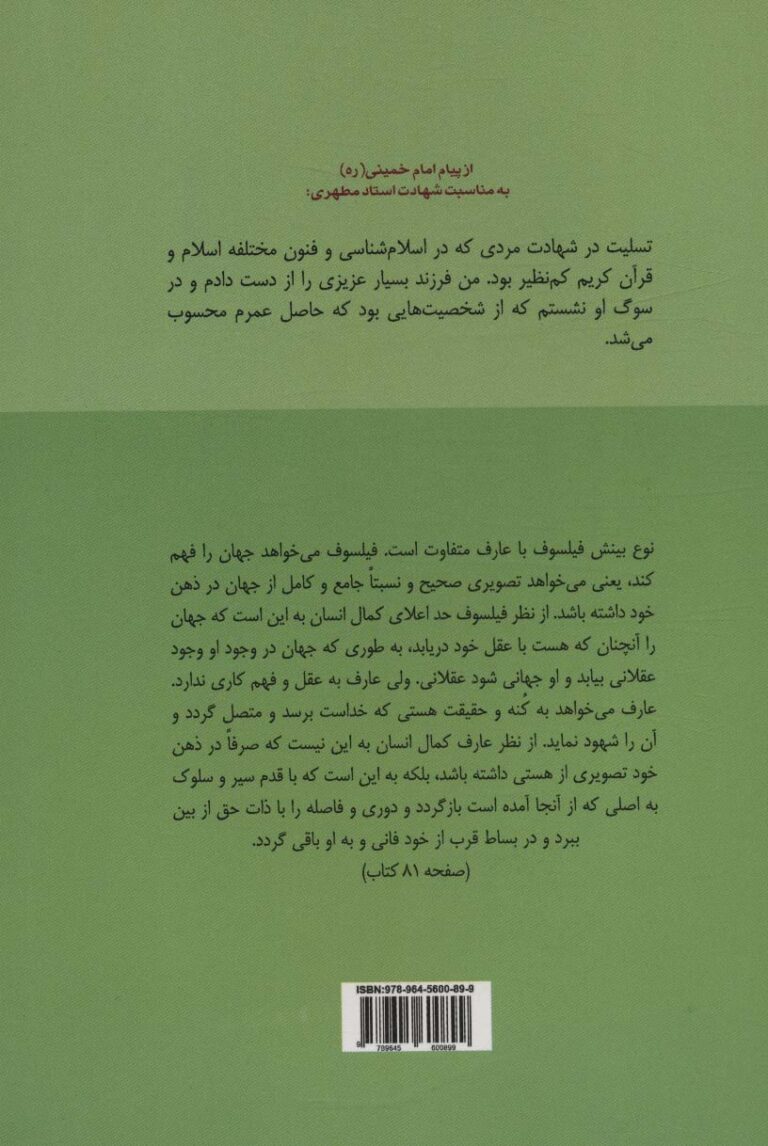 از پیام امام خمینی(ره)
به مناسبت شهادت استاد مطهری:
تسلیت در شهادت مردی که در اسلام‌شناسی و فنون مختلفه اسلام و
قرآن کریم کم‌نظیر بود. من فرزند بسیار عزیزی را از دست دادم و در
سوگ او نشستم که از شخصیت‌هایی بود که حاصل عمرم محسوب
می‌شد.
نوع بینش فیلسوف با عارف متفاوت است. فیلسوف می‌خواهد جهان را فهم
کند، یعنی می‌خواهد تصویری صحیح و نسبتاً جامع و کامل از جهان در ذهن
خود داشته باشد. از نظر فیلسوف حد اعلای کمال انسان به این است که جهان
را آنچنان که هست با عقل خود دریابد، به طوری که جهان در وجود او وجود
عقلانی بیابد و او جهانی شود عقلانی. ولی عارف به عقل و فهم کاری ندارد.
عارف می‌خواهد به کُنه و حقیقت هستی که خداست برسد و متصل گردد و
آن را شهود نماید. از نظر عارف کمال انسان به این نیست که صرفاً در ذهن
خود تصویری از هستی داشته باشد، بلکه به این است که با قدم سیر و سلوک
به اصلی که از آنجا آمده است بازگردد و دوری و فاصله را با ذات حق از بین
ببرد و در بساط قرب از خود فانی و به او باقی گردد.
(صفحه ۸۱ کتاب)
ISBN:978-964-5600-89-9
9 789645 600899